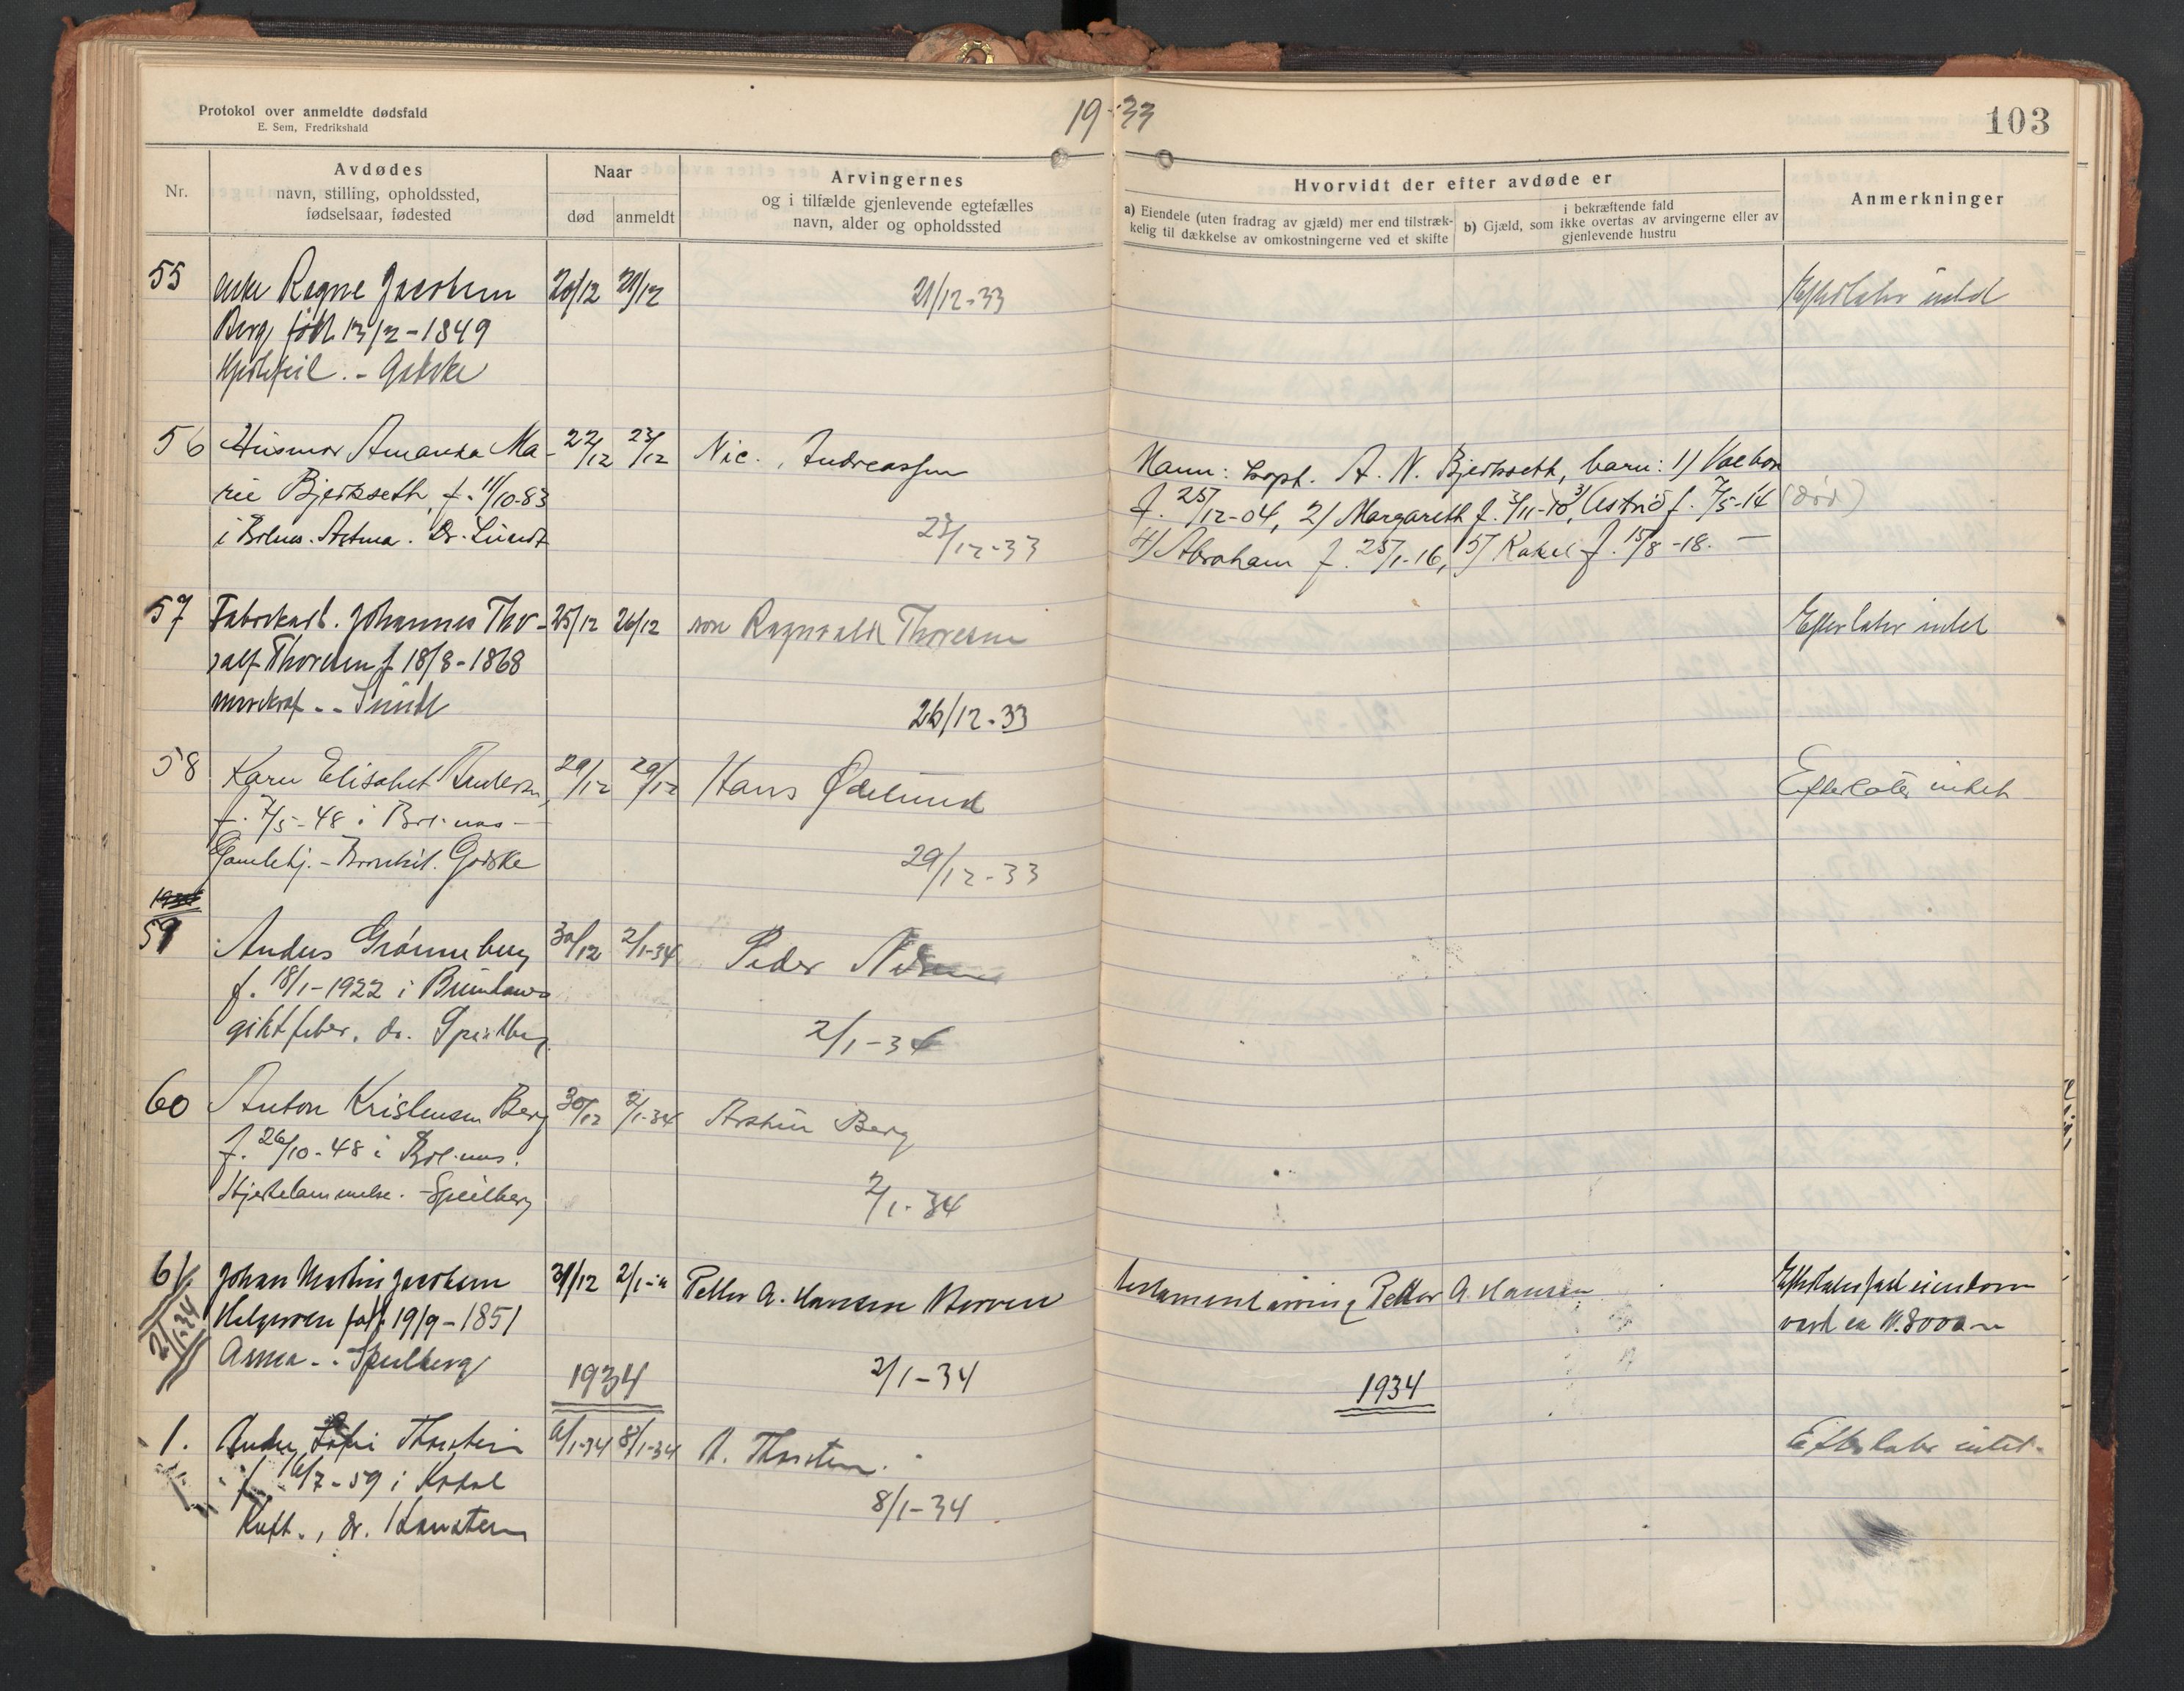 Protokol over anmeldte dødsfald
E. Sem, Fredrikshald
19-33
103
Nr.
Avdødes
navn, stilling, opholdssted,
fødselsaar, fødested
Naar
død
anmeldt
Arvingernes
og i tilfælde gjenlevende egtefælles
navn, alder og opholdssted
Hvorvidt der efter avdøde er
a) Eiendele (uten fradrag av gjæld) mer end tilstræk-
kelig til dækkelse av omkostningerne ved et skifte
i bekræftende fald
b) Gjæld, som ikke overtas av arvingerne eller av
gjenlevende hustru
Anmerkninger
55 enke Ragne Jacobsen 20/12 21/12
Berg født 13/2-1849
Hjertefeil. - Gedske
21/12-33
Efterlater intet
56 Husmor Amanda Ma- 22/12 23/12 Nic. Andreassen
rie Bjerkseth, f. 11/10-83
i Brlnes. Astma. Dr. Lundt
23/12-33
Mann: A. N. Bjerkseth, barn: 1)
f. 25/12-04, 2) Margareth f. 3/11-10, 3) Astrid f. 7/5-14 (død)
4) Abraham f. 25/1-16, 5) Rakel f. 15/8-18. —
57 Fabrikarb. Johannes Tho- 25/12 26/12 søn Ragnvald Thoresen
ralf Thoresen f 18/8-1868
26/12-33
Efterlater intet
58 Karen Elisabet Andersen, 29/12 29/12 Hans Ødelund
f. 7/5-48 i Brl.nes -
Gamlehj. - Bronkit. Gedske
29/12-33
Efterlater intet
59 Anders Grønneberg 30/12 2/1-34 Peder
f. 18/1-1922 i Brunlanes
giktfeber. dr. Speilberg.
2/1-34
60 Anton Kristensen Berg 30/12 2/1-34 Berg
f. 26/10-48 i Brl.nes.
Hjertelammelse. - Speilberg
2/1-34
61 Johan Martin Jacobsen 31/12 2/1- Petter A. Hansen
Helgeroen født 19/9-1851
2/1-34
- Speilberg
2/1-34
testamentarving Petter A. Hansen
Efterlater fast eiendom
verd ca kr. 8000 -
1934
1934
1. Sofi 6/1-34 8/1-34 A.
f. 16/7-59 i Kodal
dr.
8/1-34
Efterlater intet.